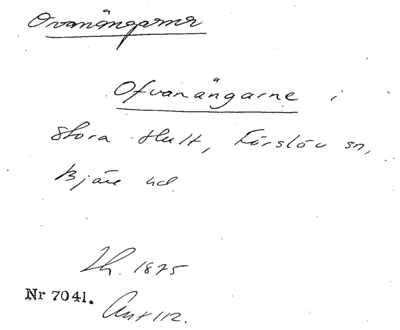 Ovanängarna
Ofvanängarne i
Stora Hult, Förslöv sn,
Bjäre hd.
Lh. 1875
Nr 7041.
Ant 112.